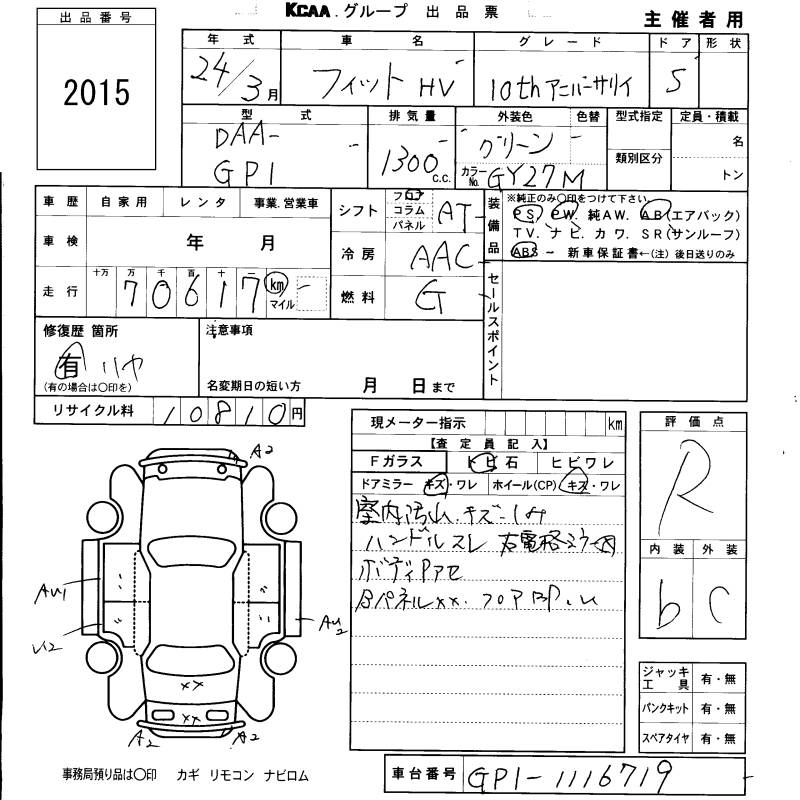 KCAA グループ 出品票
主催者用
出品番号
2015
年式 車名 グレード ドア 形状
24/3月 フィット HV 10th アニバーサリィ 5
型式 排気量 外装色 色替 型式指定 定員・積載
DAA-
GP1 1300c.c. グリーン 名
カラーNo. GY27M 類別区分 トン
車歴 自家用 レンタ 事業.営業車
車検 年 月
走行 十万 万 千 百 十 一
70617 km
マイル
シフト フロア コラム パネル AT
冷房 AAC
燃料 G
装備品
※純正のみ〇印をつけて下さい
PS PW. 純AW. AB(エアバック)
TV. ナビ. カワ. SR(サンルーフ)
ABS ~ 新車保証書←(注) 後日送りのみ
セールスポイント
修復歴 箇所
有 リヤ
(有の場合は〇印を)
注意事項
名変期日の短い方 月 日まで
リサイクル料 10810円
現メーター指示 km
【査定員記入】
Fガラス トビ石 ヒビワレ
ドアミラー キズ・ワレ ホイール(CP) キズ・ワレ
室内汚れ.キズ-しみ
ハンドルスレ 右電格ミラー
ボディ
Bパネルxx. フロア
評価点
R
内装 外装
b C
A2
AU1
U2
AU2
xx
xx
A2
A2
ジャッキ工具 有・無
パンクキット 有・無
スペアタイヤ 有・無
事務局預り品は〇印 カギ リモコン ナビロム
車台番号 GP1-1116719